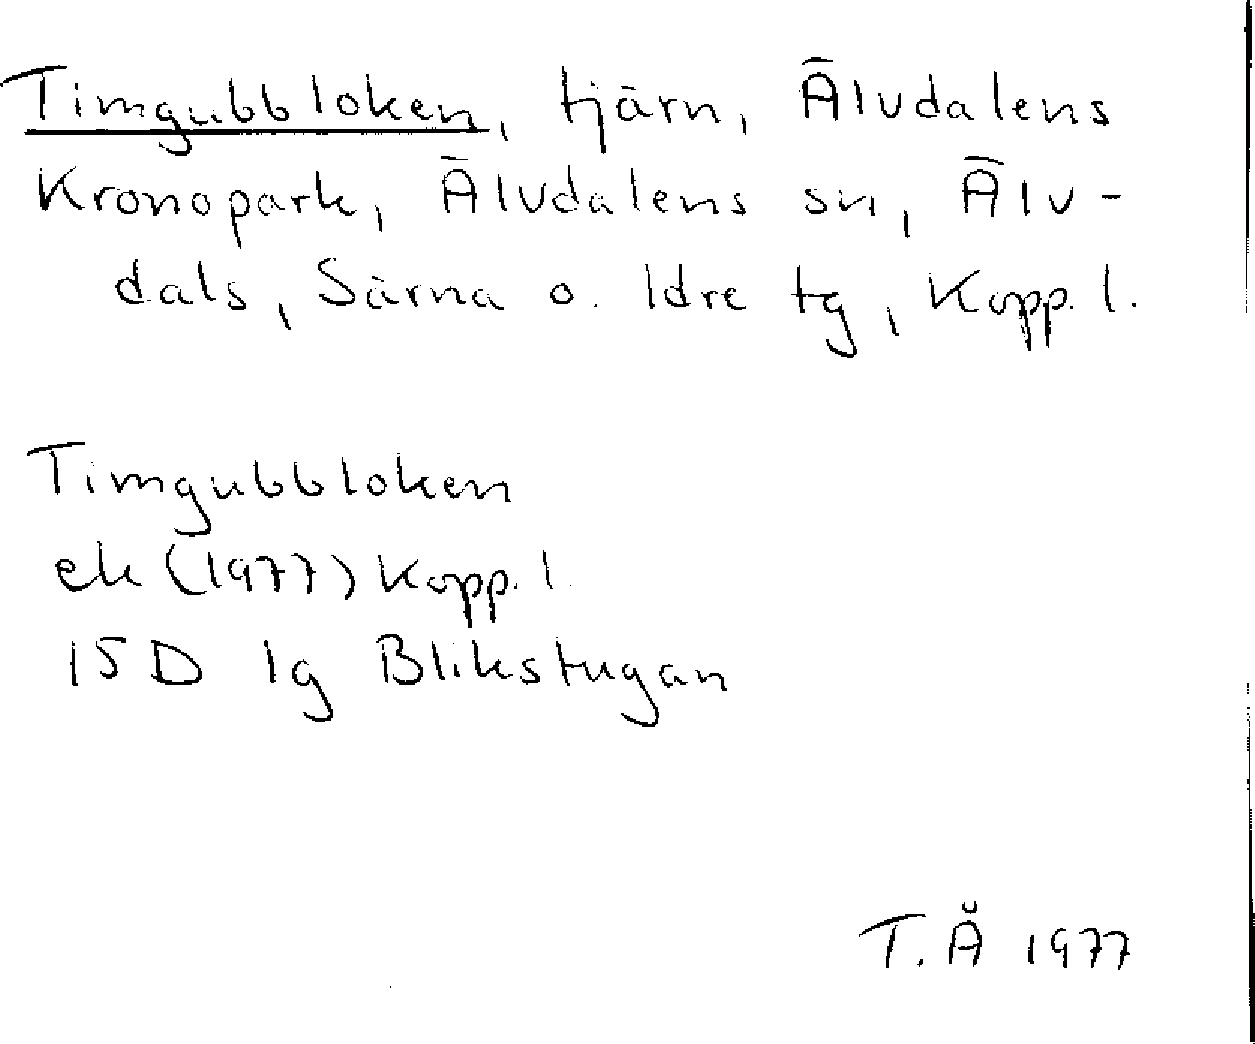 Timgubbloken, tjärn, Älvdalens
Kronopark, Älvdalens sn, Älv-
dals, Särna o. Idre tg, Kopp. l.
Timgubbloken
ek (1977) Kopp. l.
15 D 1g Blikstugan
T. Å 1977